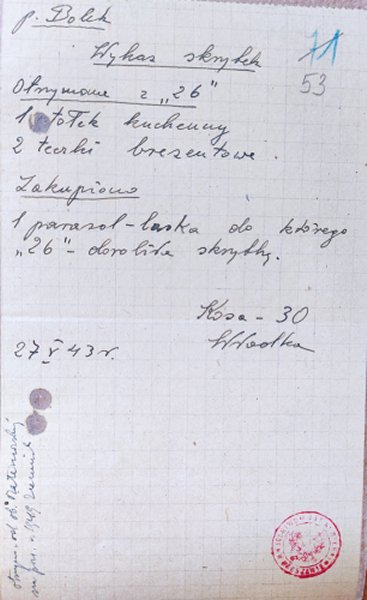 p. Bolek
71
Wykaz skrytek
53
Otrzymane z „26"
1 stołek kuchenny
2 teczki brezentowe
Zakupiono
1 parasol-laska do którego
„26" - dorobiła skrytkę.
Kosa - 30
Wladka
27 V 43 r.
otrzym. od ob.